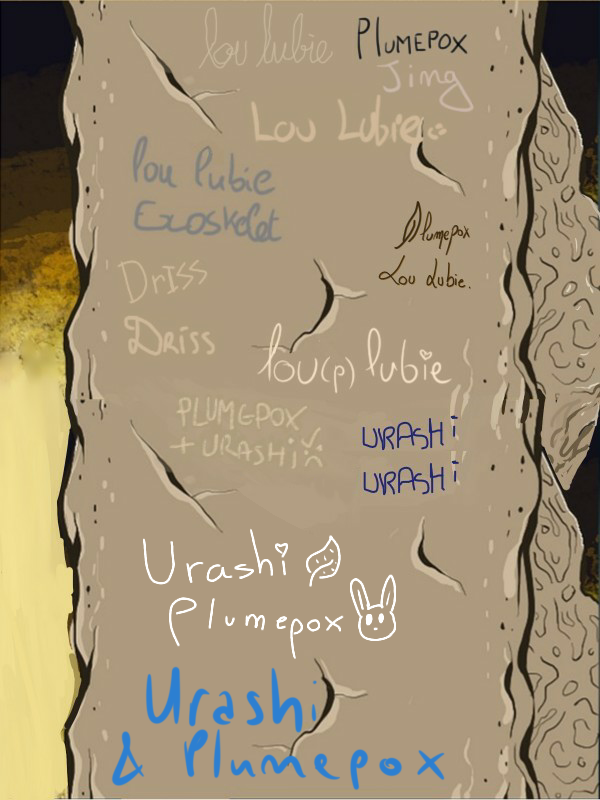 lou lubie
PLUMEPOX
Jing
Lou Lubie
lou lubie
Exoskelet
Plumepox
Lou Lubie.
Driss
Driss
lou(p) lubie
PLUMEPOX
+ URASHi
URASHi
URASHi
Urashi
Plumepox
Urashi
& Plumepox